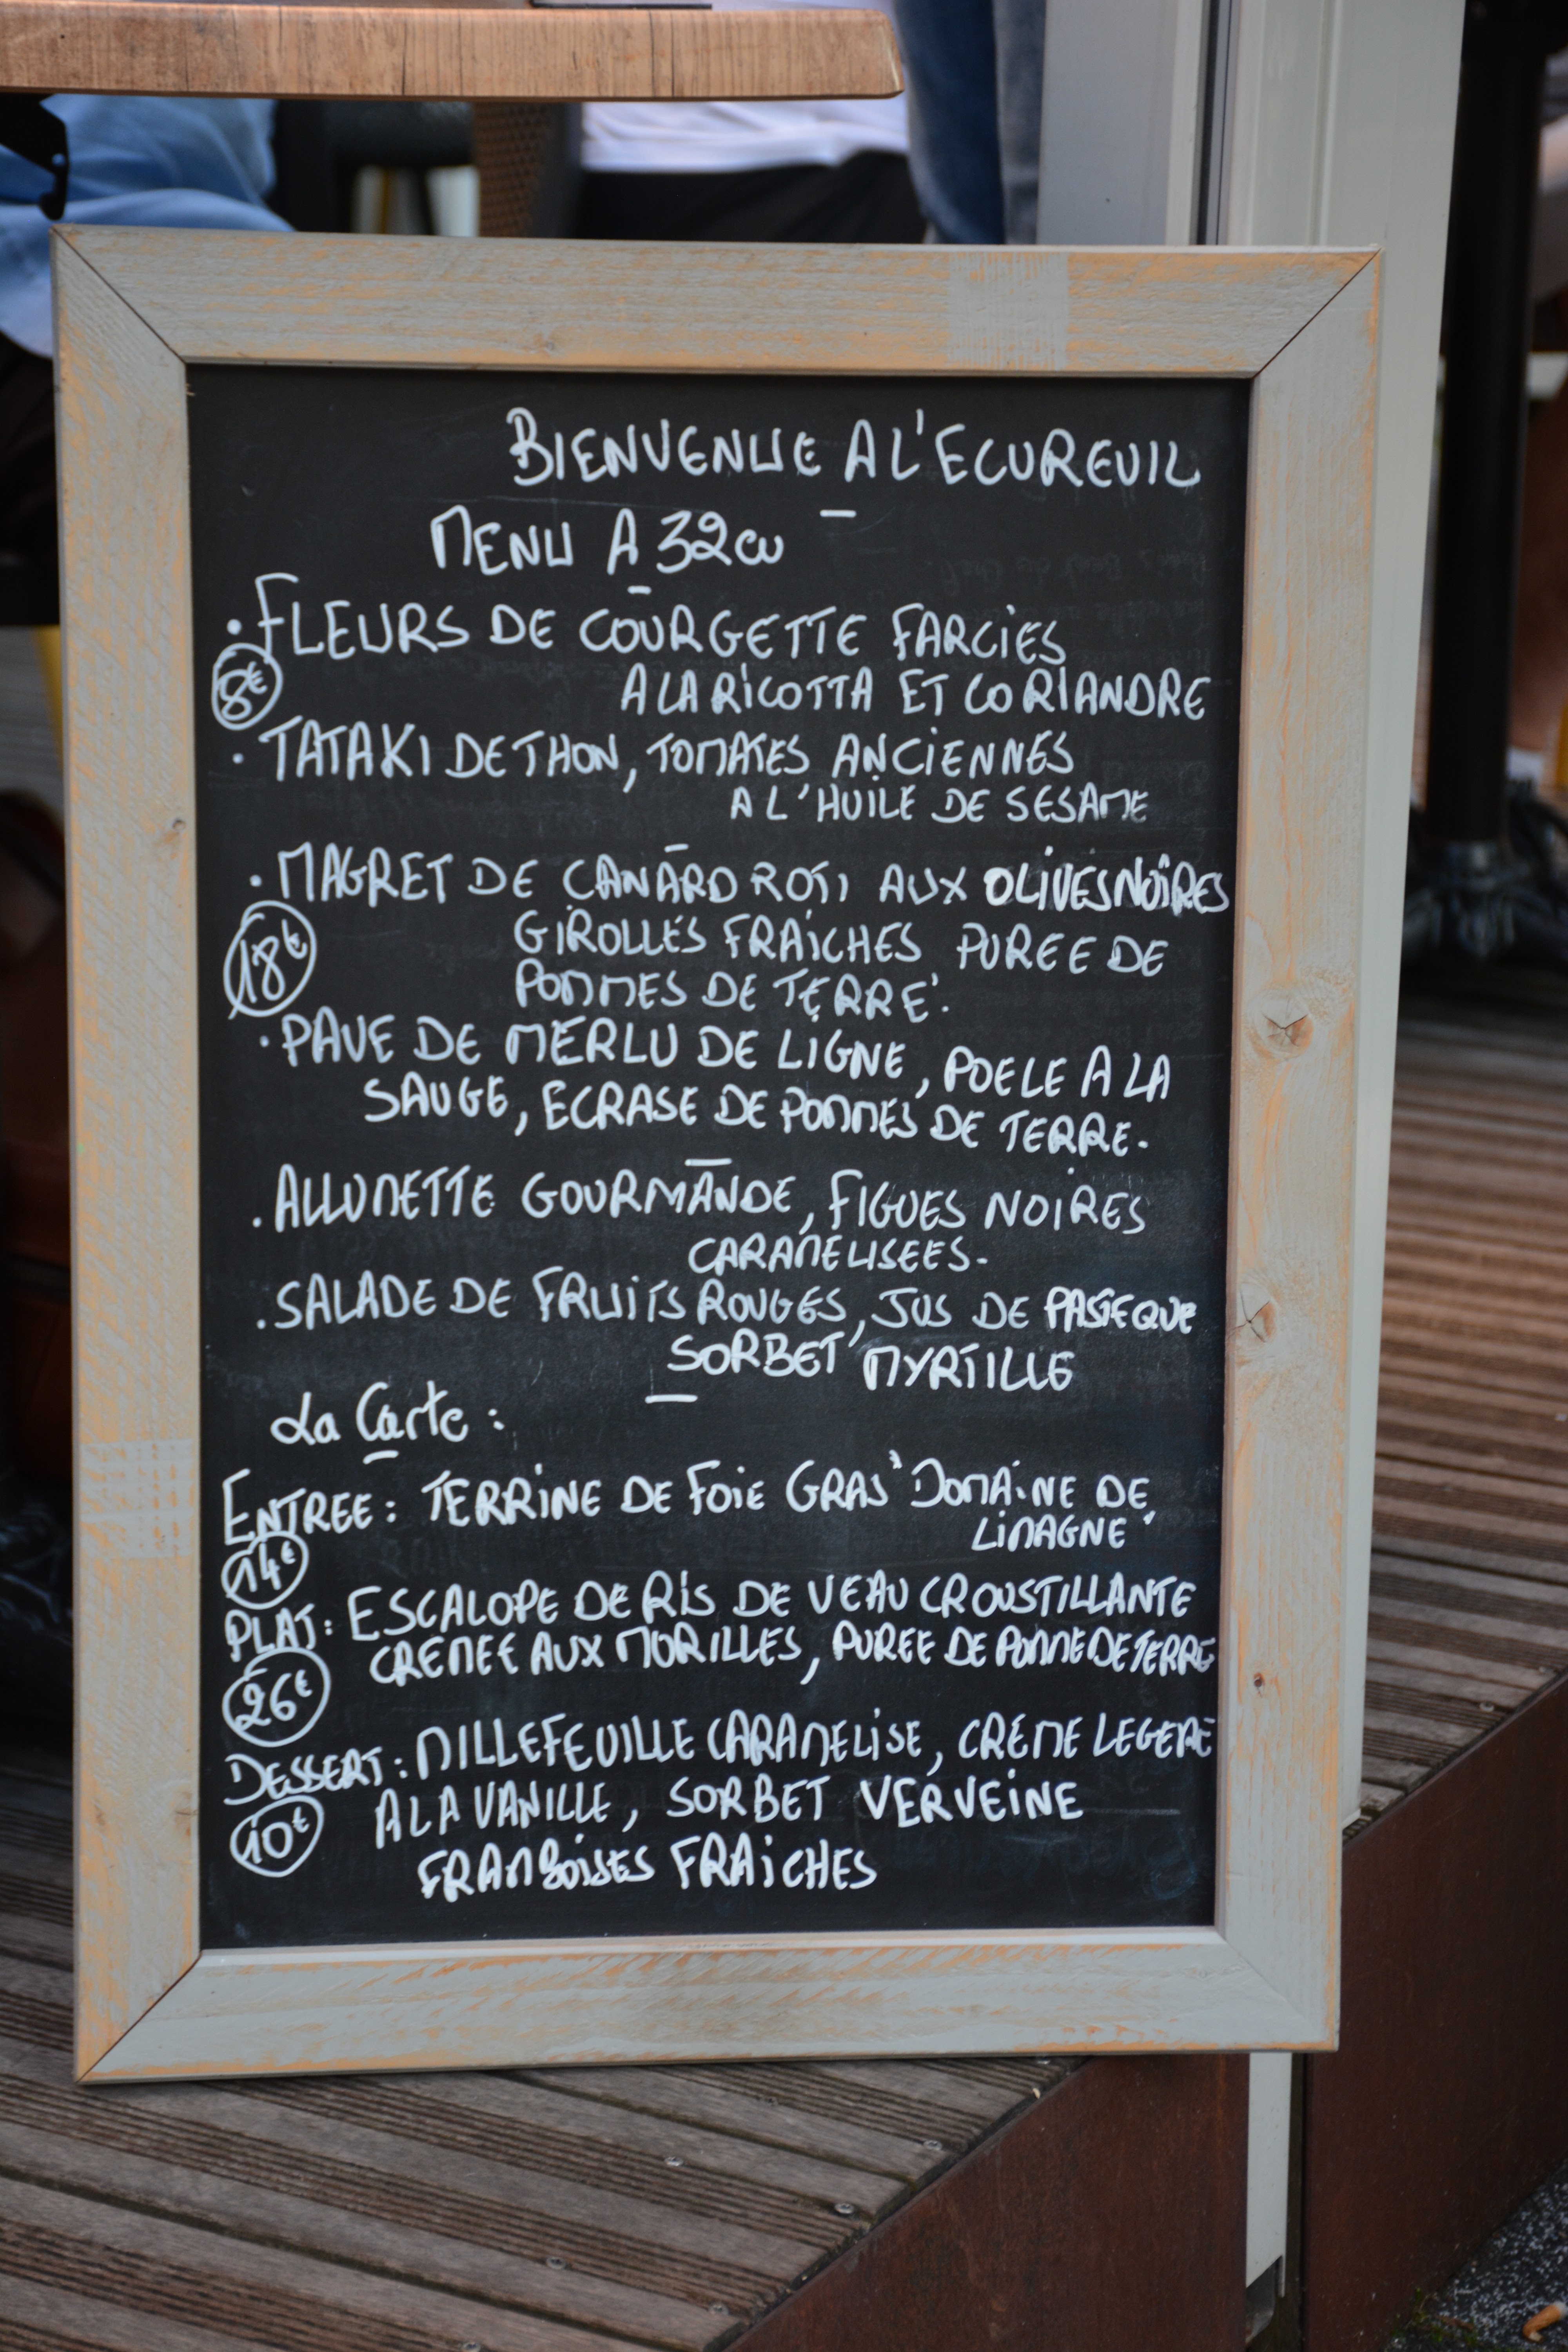 BIENVENUE A L'ECUREUIL
MENU A 32
• FLEURS DE COURGETTE FARCIES
8€
A LA RICOTTA ET CORIANDRE
• TATAKI DE THON, TOMATES ANCIENNES
A L'HUILE DE SESAME
• MAGRET DE CANARD ROTI AUX OLIVES NOIRES
18€
GIROLLES FRAICHES PUREE DE
POMMES DE TERRE.
• PAVE DE MERLU DE LIGNE, POELE A LA
SAUGE, ECRASE DE POMMES DE TERRE.
. ALLUMETTE GOURMANDE, FIGUES NOIRES
CARAMELISEES.
. SALADE DE FRUITS ROUGES, JUS DE PASTEQUE
SORBET MYRTILLE
La Carte :
ENTREE : TERRINE DE FOIE GRAS "DOMAINE DE
LIMAGNE"
14€
PLAT : ESCALOPE DE RIS DE VEAU CROUSTILLANTE
CREMEE AUX MORILLES, PUREE DE POMME DE TERRE
26€
DESSERT : MILLEFEUILLE CARAMELISE, CREME LEGERE
A LA VANILLE, SORBET VERVEINE
10€
FRAMBOISES FRAICHES